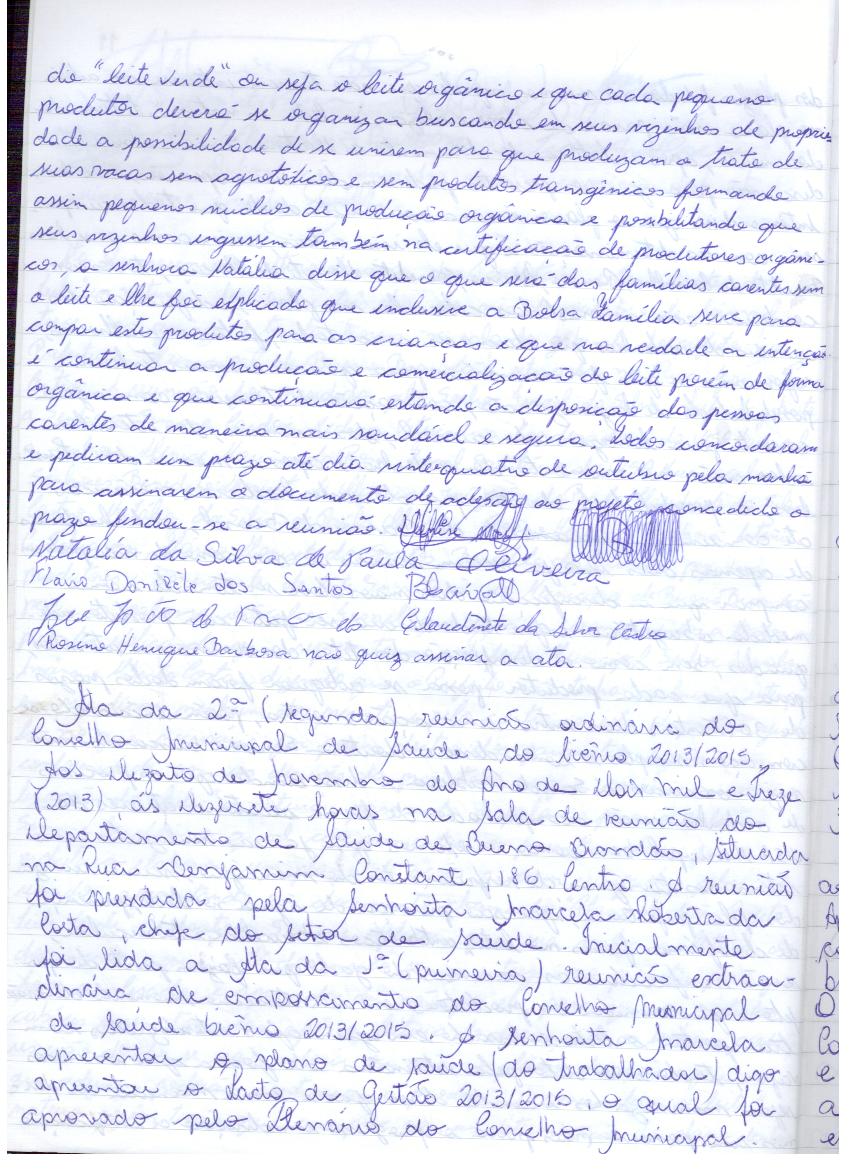 do "leite verde" ou seja o leite orgânico e que cada pequeno
produtor deverá se organizar buscando em seus vizinhos de proprie-
dade a possibilidade de se unirem para que produzam o trato de
suas vacas sem agrotóticos e sem produtos transgênicos formando
assim pequenos núcleos de produção orgânica e possibilitando que
seus vizinhos ingressem também na certificação de produtores orgâni-
cos, a senhora Natália disse que o que será das famílias carentes sem
o leite e lhe foi explicado que inclusive a Bolsa Família serve para
compar estes produtos para as crianças e que na verdade a intenção
é continuar a produção e comercialização do leite porém de forma
orgânica e que continuará estando a disposição das pessoas
carentes de maneira mais saudável e segura. Todos concordaram
e pediram um prazo até dia vinte quatro de outubro pela manhã
para assinarem o documento de adesão ao projeto concedido o
prazo findou-se a reunião.
Natalia da Silva de Paula Oliveira
Flavio Donizete dos Santos
Claudinete da Silva Castro
Rosino Henrique Barbosa não quiz assinar a ata.
Ata da 2ª (segunda) reunião ordinária do
Conselho Municipal de Saúde do biênio 2013/2015,
Aos dezoito de novembro do Ano de Dois mil e Treze
(2013), às dezessete horas na sala de reunião do
Departamento de Saúde de Bueno Brandão, situada
na Rua Benjamim Constant, 186. Centro. A reunião
foi presidida pela senhorita Marcela Roberta da
Costa, chefe do setor de saúde. Inicialmente
foi lida a Ata da 1ª (primeira) reunião extraor-
dinária de empossamento do Conselho Municipal
de Saúde biênio 2013/2015. A senhorita Marcela
apresentou o plano de saúde (do trabalhador) digo
apresentou o Pacto de Gestão 2013/2015, o qual foi
aprovado pelo Plenário do Conselho Municipal.